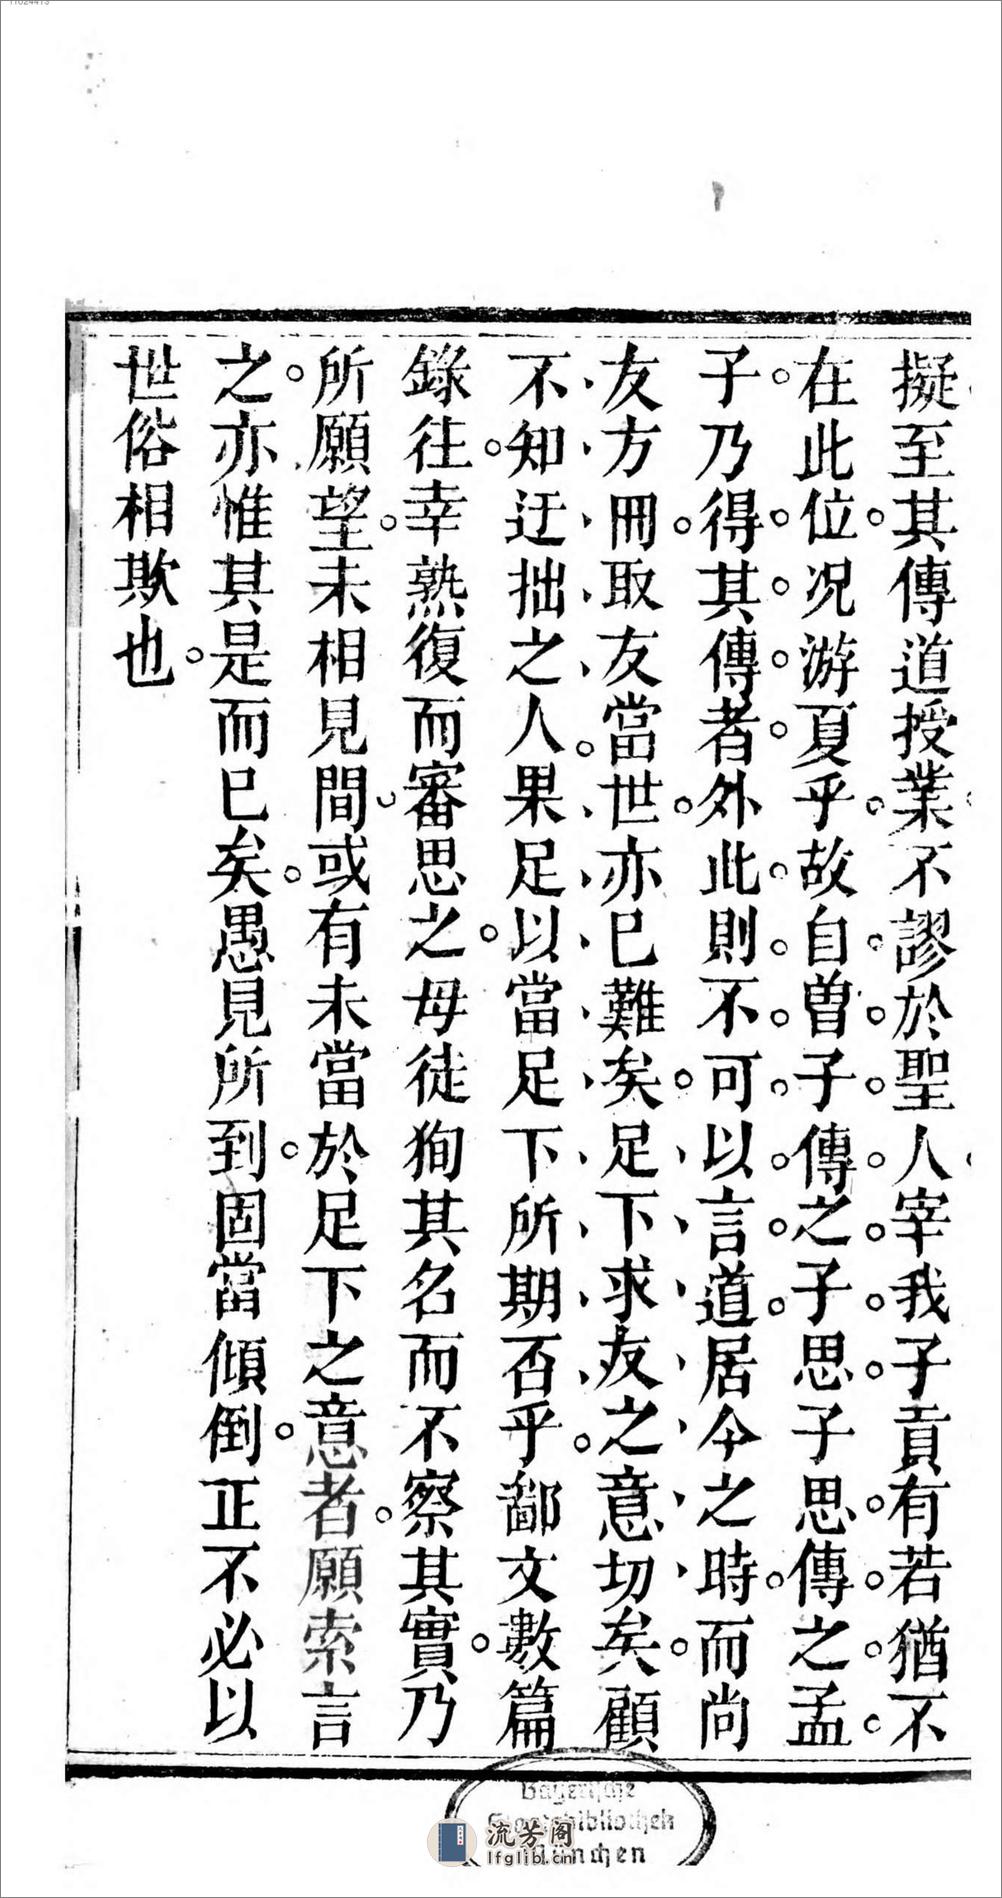 擬至其傳道授業不謬於聖人宰我子貢有若猶不
在此位况游夏乎故自曽子傳之子思子思傳之孟
子乃得其傳者外此則不可以言道居今之時而尚
友方冊取友當世亦已難矣足下求友之意切矣顧
不知迂拙之人果足以當足下所期否乎鄙文數篇
錄往幸熟復而審思之毋徒狥其名而不察其實乃
所願望未相見間或有未當於足下之意者願索言
之亦惟其是而已矣愚見所到固當傾倒正不必以
世俗相欺也
11024413
Bayerische
Staatsbibliothek
München
流芳阁
lfglib.cn